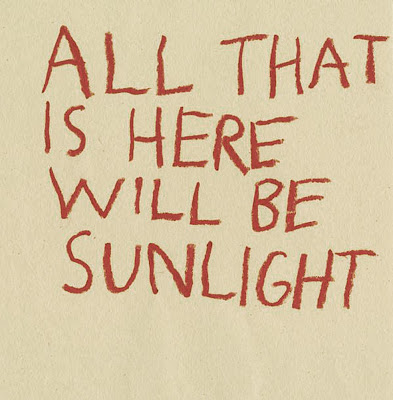 ALL THAT
IS HERE
WILL BE
SUNLIGHT